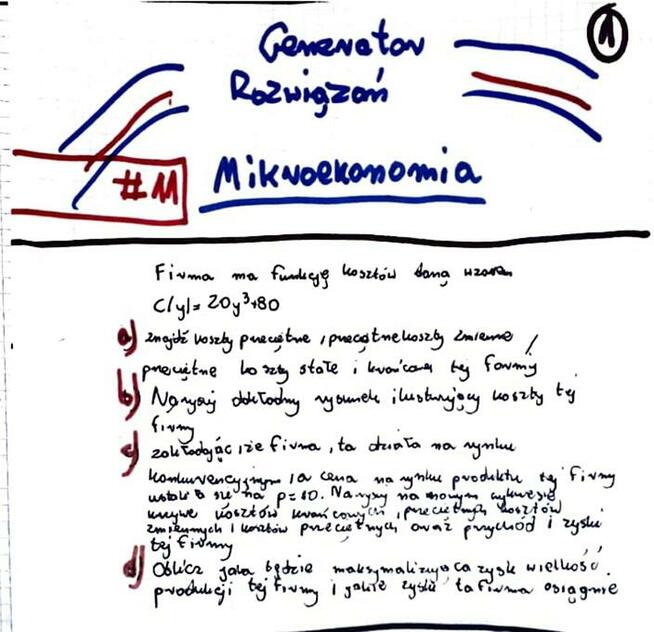 1
Generator
Rozwiązań
#11 Mikroekonomia
Firma ma funkcję kosztów daną wzorem
C(y)= 20y³+80
a) znajdź koszty przeciętne, przeciętne koszty zmienne,
przeciętne koszty stałe i krańcowe tej formy
b) Narysuj dokładny rysunek ilustrujący koszty tej
firmy
c) zakłodając że firma, ta działa na rynku
konkurencyjnym, a cena na rynku produktu tej firmy
ustali się na p=
Narysuj na nowym wykresie
krzywe kosztów krańcowych, przeciętnych kosztów
zmiennych i kosztów przeciętnych oraz przychód i zyski
tej firmy
d) Oblicz jaka będzie maksymalizująca zysk wielkość
produkcji tej firmy i jakie zyski ta firma osiągnie